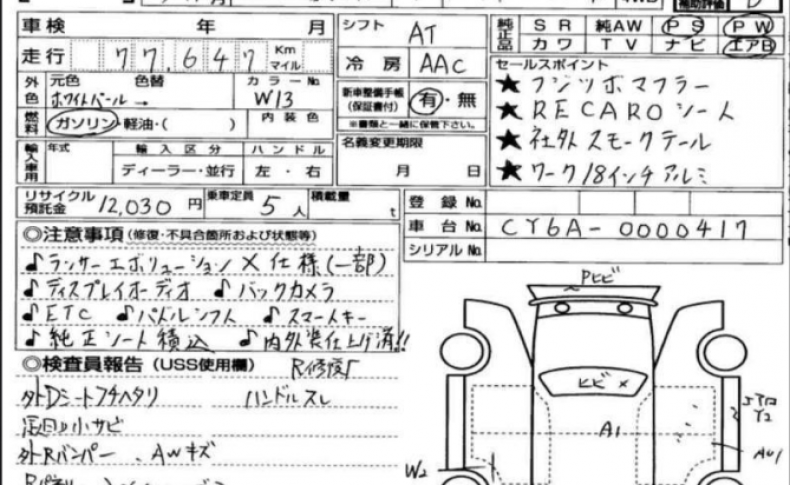 車検 年 月
シフト AT
純正品 SR 純AW PS PW
カワ TV ナビ エアB
走行 77,647 Km マイル
冷房 AAC
セールスポイント
外色 元色 色替 カラーNo.
ホワイトパール → W13
新車整備手帳(保証書付) 有・無
※書類と一緒に保管下さい。
★フジツボマフラー
★RECAROシート
★社外スモークテール
★ワーク18インチアルミ
燃料 ガソリン・軽油・( ) 内装色
名義変更期限
月 日
輸入車用 年式 輸入区分 ハンドル
ディーラー・並行 左・右
リサイクル預託金 12,030円 乗車定員 5人 積載量 t
登録No.
車台No. CY6A-0000417
シリアルNo.
◎注意事項(修復・不具合箇所および状態等)
♪ランサーエボリューションX仕様(一部)
♪ディスプレイオーディオ ♪バックカメラ
♪ETC ♪パドルシフト ♪スマートキー
♪純正シート積込 ♪内外装仕上げ済!!
◎検査員報告(USS使用欄)
外Dシートフチヘタリ ハンドルスレ
小サビ
外Rバンパー、AWキズ
Pヒビ
ヒビ×
A1
W2
Y2
AU1